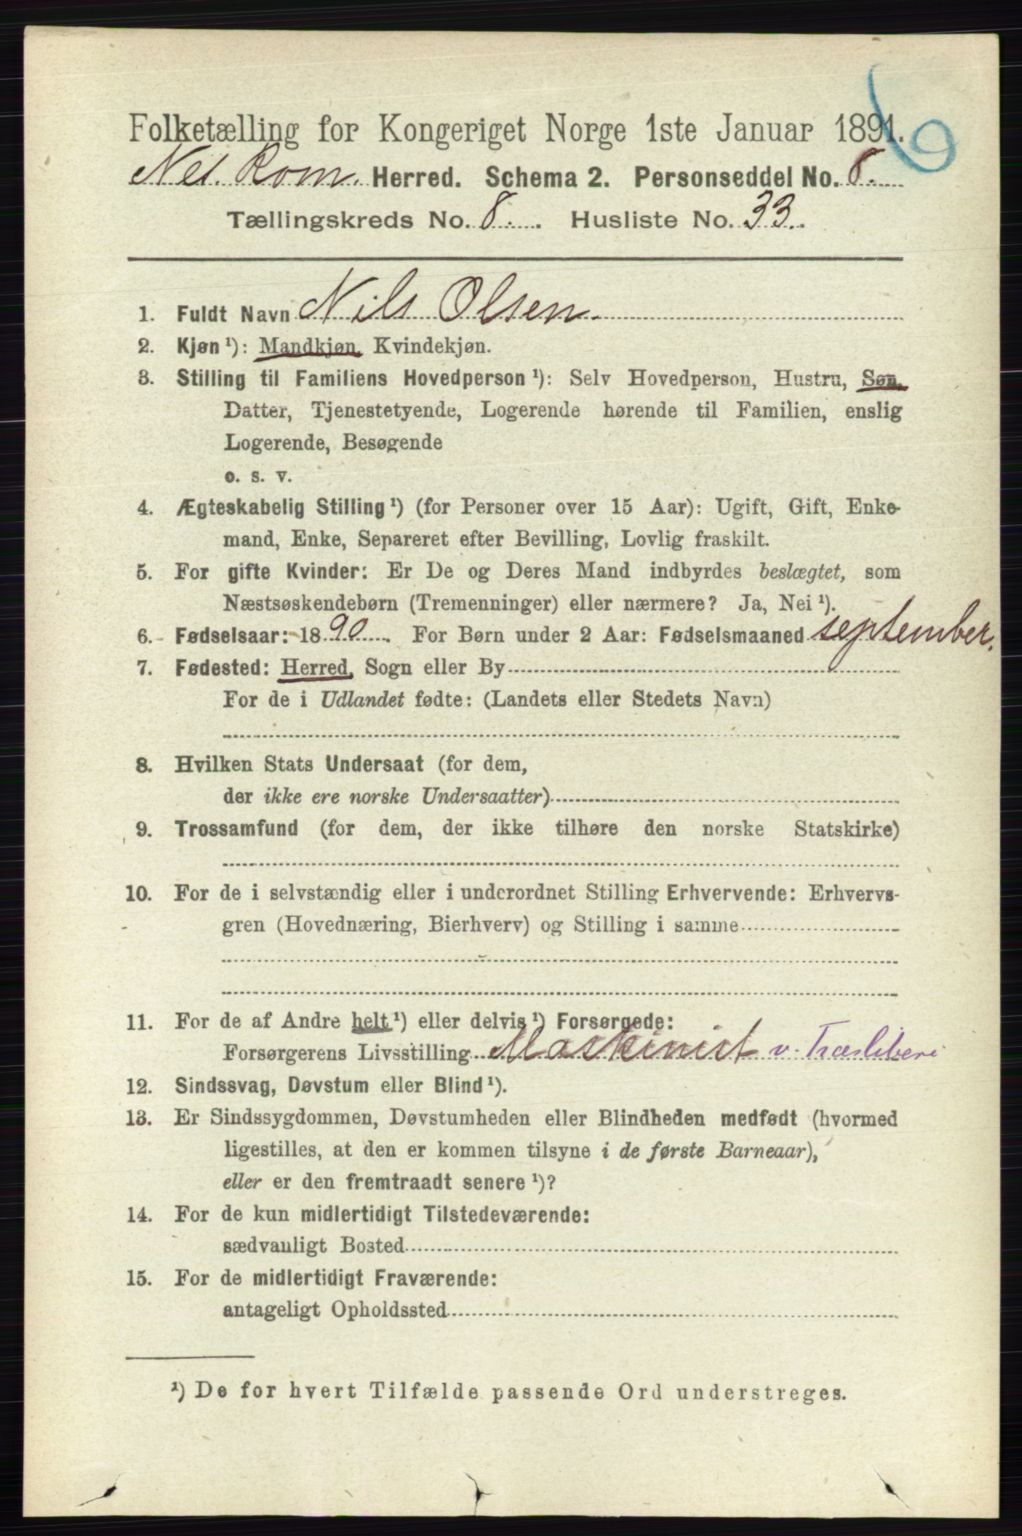 Folketælling for Kongeriget Norge 1ste Januar 1891.
Nes. Rom. Herred. Schema 2. Personseddel No. 8.
Tællingskreds No. 8. Husliste No. 33.
1. Fuldt Navn Nils Olsen.
2. Kjøn ¹): Mandkjøn, Kvindekjøn.
3. Stilling til Familiens Hovedperson ¹): Selv Hovedperson, Hustru, Søn,
Datter, Tjenestetyende, Logerende hørende til Familien, enslig
Logerende, Besøgende
o. s. v.
4. Ægteskabelig Stilling ¹) (for Personer over 15 Aar): Ugift, Gift, Enke-
mand, Enke, Separeret efter Bevilling, Lovlig fraskilt.
5. For gifte Kvinder: Er De og Deres Mand indbyrdes beslægtet, som
Næstsøskendebørn (Tremenninger) eller nærmere? Ja, Nei ¹).
6. Fødselsaar: 1890. For Børn under 2 Aar: Fødselsmaaned september.
7. Fødested: Herred, Sogn eller By
For de i Udlandet fødte: (Landets eller Stedets Navn)
8. Hvilken Stats Undersaat (for dem,
der ikke ere norske Undersaatter)
9. Trossamfund (for dem, der ikke tilhøre den norske Statskirke)
10. For de i selvstændig eller i underordnet Stilling Erhvervende: Erhvervs-
gren (Hovednæring, Bierhverv) og Stilling i samme
11. For de af Andre helt ¹) eller delvis ¹) Forsørgede:
Forsørgerens Livsstilling Maskinist v. Træsliberi
12. Sindssvag, Døvstum eller Blind ¹).
13. Er Sindssygdommen, Døvstumheden eller Blindheden medfødt (hvormed
ligestilles, at den er kommen tilsyne i de første Barneaar),
eller er den fremtraadt senere ¹)?
14. For de kun midlertidigt Tilstedeværende:
sædvanligt Bosted
15. For de midlertidigt Fraværende:
antageligt Opholdssted
¹) De for hvert Tilfælde passende Ord understreges.